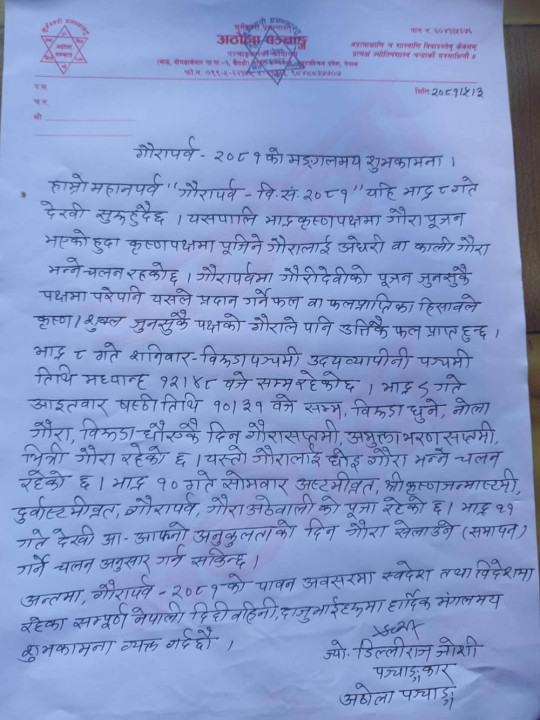 अठोला पञ्चाङ्ग
मिति: २०८१।५।३
प.स.
च.न.
श्री
गौरापर्व - २०८१ को मङ्गलमय शुभकामना ।
हाम्रो महानपर्व "गौरापर्व - वि.सं. २०८१" यहि भाद्र ८ गते
देखी सुरुहुँदैछ । यसपालि भाद्र कृष्णपक्षमा गौरा पूजन
भएको हुदा कृष्णपक्षमा पूजिने गौरालाई अँधरी वा काली गौरा
भन्ने चलन रहकोछ । गौरापर्वमा गौरीदेवीको पूजन जुनसुकै
पक्षमा परेपनि यसले प्रदान गर्ने फल वा फलप्राप्तिका हिसावले
कृष्ण / शुक्ल जुनसुकै पक्षको गौराले पनि उत्तिकै फल प्राप्त हुन्छ ।
भाद्र ८ गते शनिवार - विरूडा पञ्चमी, उदयव्यापीनी पञ्चमी
तिथि मध्यान्ह १२।४८ वजे सम्म रहेकोछ । भाद्र ९ गते
आइतवार षष्ठी तिथि १०।३१ वजे सम्म, विरूडा धुने, नोला
गौरा, विरूडा धोएकै दिन गौरासप्तमी, अमुक्ताभरण सप्तमी,
भित्री गौरा रहेको छ । यस्तो गौरालाई धोई गौरा भन्ने चलन
रहेको छ । भाद्र १० गते सोमवार अष्टमीव्रत, श्रीकृष्णजन्माष्टमी,
दुर्वाष्टमीव्रत, गौरापर्व, गौरा अठेवाली को पूजा रहेको छ । भाद्र ११
गते देखी आ-आफ्नो अनुकुलताको दिन गौरा खेलाउने (समापन)
गर्ने चलन अनुसार गर्न सकिन्छ ।
अन्तमा, गौरापर्व - २०८१ को पावन अवसरमा स्वदेश तथा विदेशमा
रहेका सम्पूर्ण नेपाली दिदीवहिनी, दाजुभाईहरूमा हार्दिक मंगलमय
शुभकामना व्यक्त गर्दछौ ।
ज्यो. डिल्लीराज जोशी
पञ्चाङ्गकार
अठोला पञ्चाङ्ग